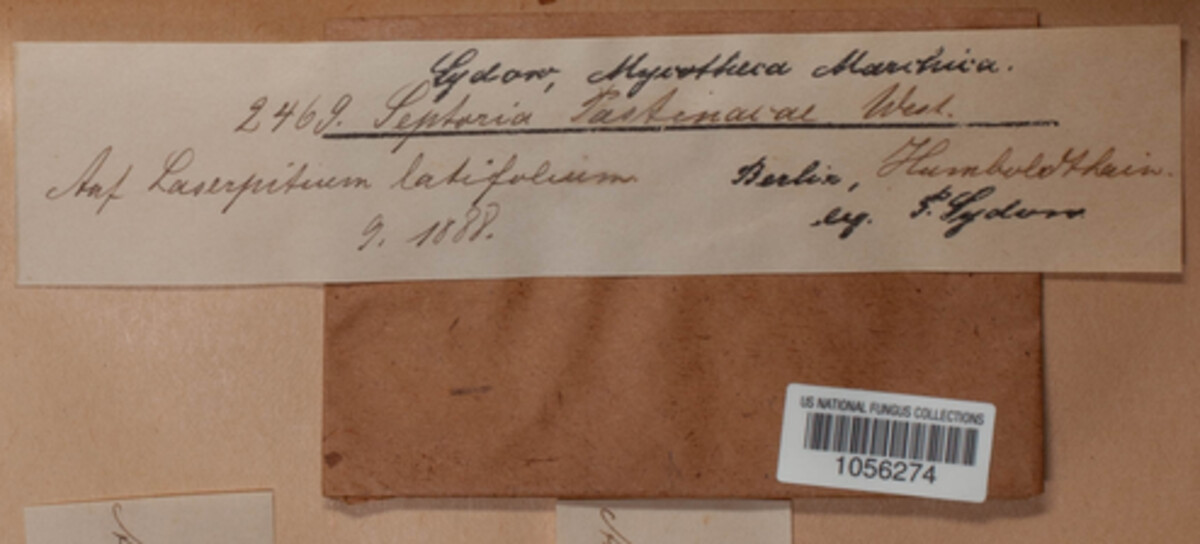 Sydow, Mycotheca Marchica.
2469. Septoria Pastinacae West.
Auf Laserpitium latifolium Berlin, Humboldthain.
9. 1888. leg. P. Sydow
US NATIONAL FUNGUS COLLECTIONS
1056274